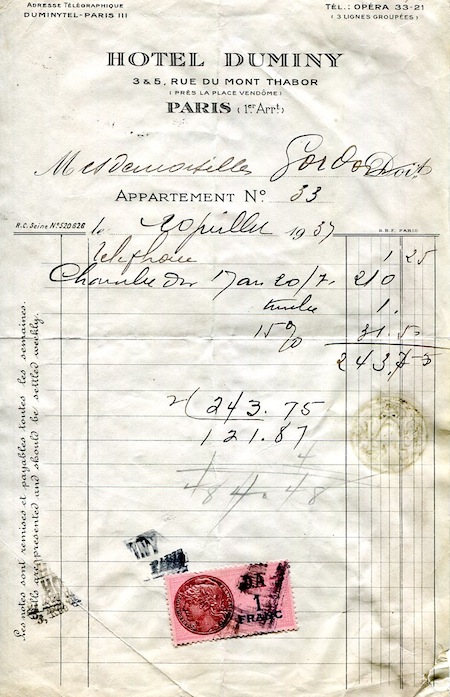 ADRESSE TÉLÉGRAPHIQUE
DUMINYTEL-PARIS III
TÉL.: OPÉRA 33-21
( 3 LIGNES GROUPÉES )
HOTEL DUMINY
3 & 5, RUE DU MONT THABOR
( PRÈS LA PLACE VENDÔME )
PARIS ( 1er Arrt )
Mesdemoiselles Gordon Doit
APPARTEMENT No. 33
R.C. Seine No 520626
le 20 juillet 1937
Téléphone 1 25
Chambre du 17 au 20/7. 210
timbre 1.
15% 31.50
243,75
2 ( 243.75
121.87
4
484.48
Les notes sont remises et payables toutes les semaines.
Bills are presented and should be settled weekly.
1
FRANC